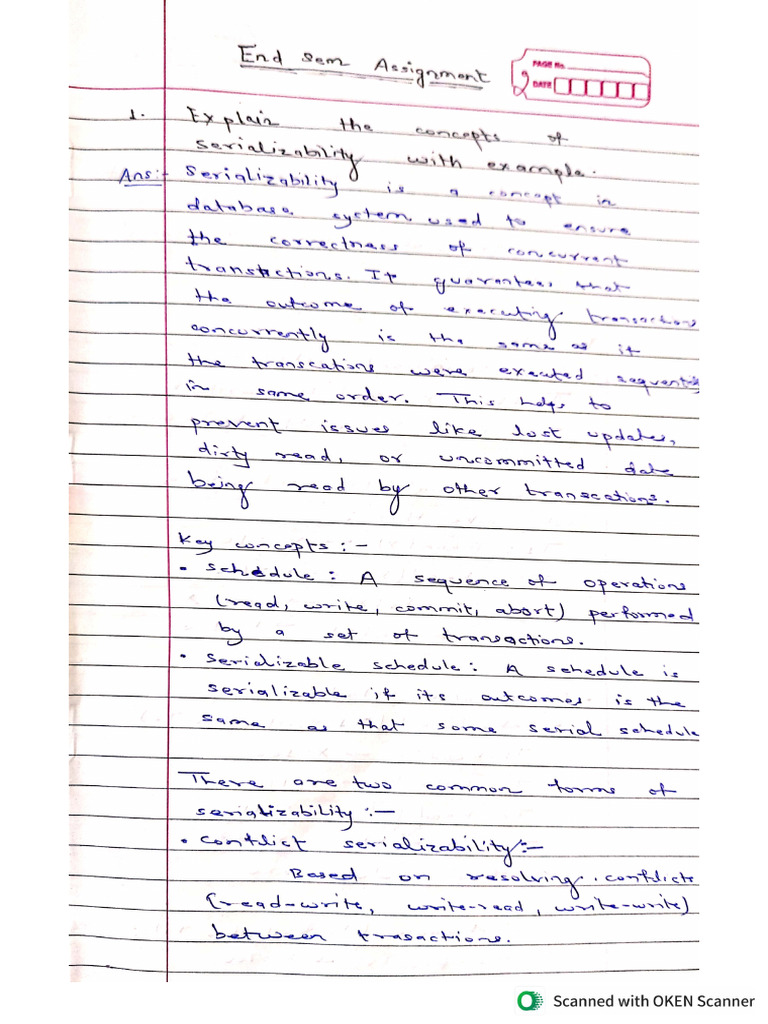 End Sem Assignment
PAGE No.
DATE
1. Explain the concepts of
serializability with example.
Ans:- Serializability is a concept in
database system used to ensure
the correctness of concurrent
transtictions. It guarantees that
the outcome of executing transactions
concurrently is the same as if
the transcations were exected sequenti
in same order. This helps to
prevent issues like lost updates,
dirty read, or uncommitted data
being read by other transcations.
Key concepts :-
• Schedule : A sequence of operations
(read, write, commit, abort) performed
by a set of transactions.
• Serializable schedule : A schedule is
serializable if its outcomes is the
same as that some serial schedule
There are two common forms of
serializability :-
• Conflict serializability :-
Based on resolving conflicts
(read-write, write-read, write-write)
between trasactions.
Scanned with OKEN Scanner